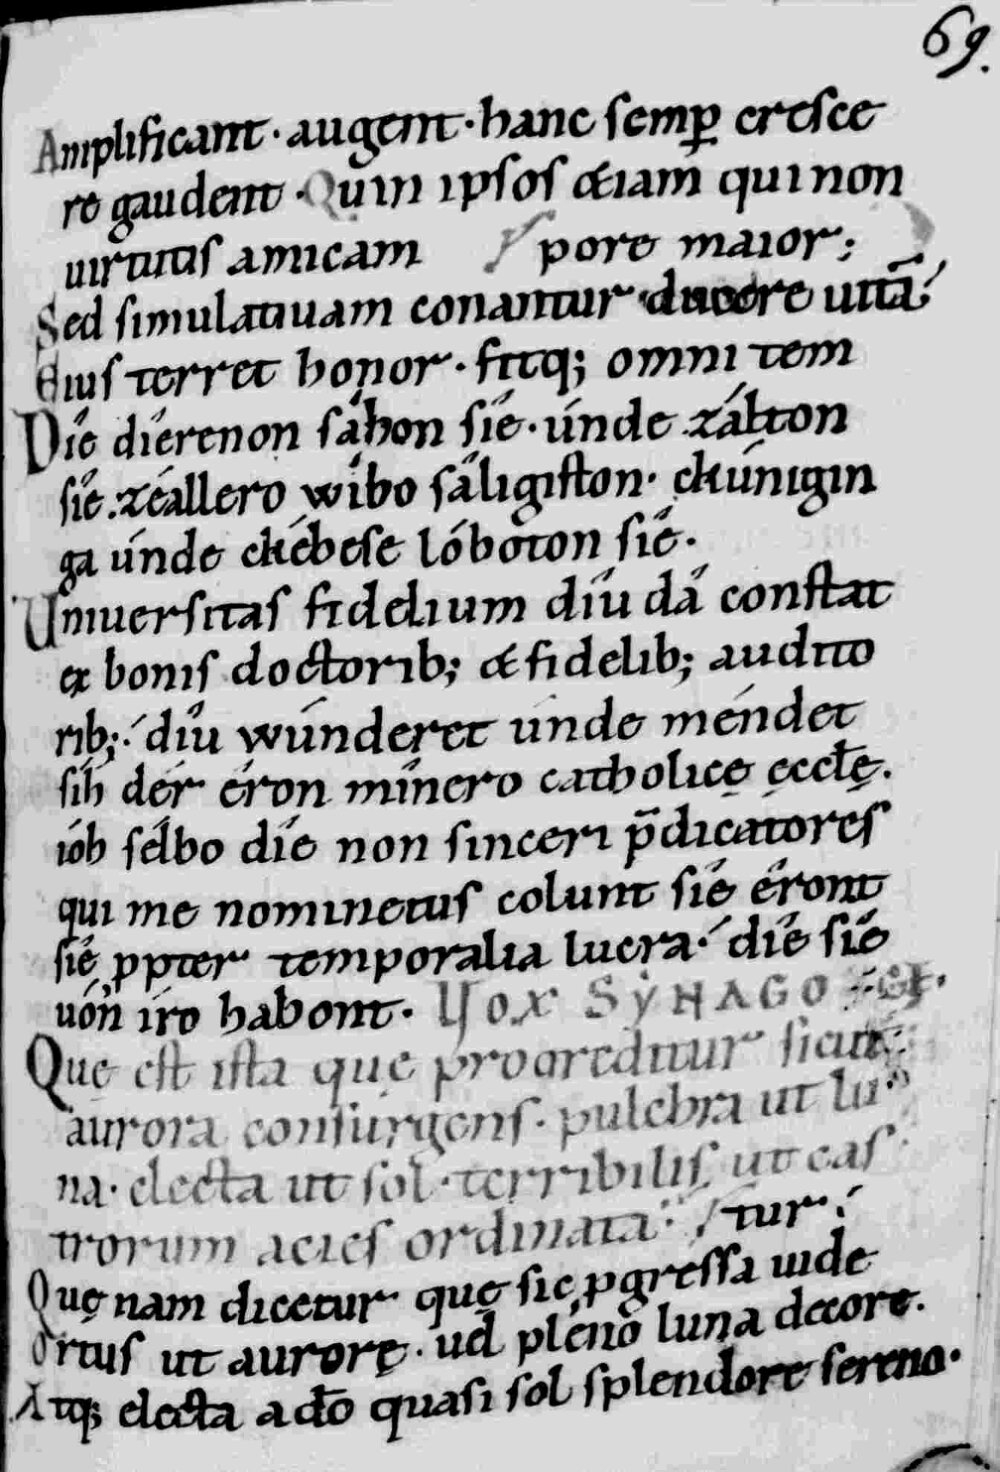 69.
Amplificant · augent · hanc semꝑ cresce
re gaudent · Quin ipsos &iam qui non
uirtutis amicam pore maior;
Sed simulatiuam conantur ducere uitā.
Eius terret honor · fitq; omni tem
Díe díerenon sáhon síe · únde zálton
síe. zéallero wíbo sâligiston · chúnigin
ga únde chébese lóboton síe.
Vniuersitas fidelium díu dâ constat
ex bonis doctorib; & fidelib; audito
rib; díu wúnderet únde méndet
síh dér éron mínero catholicę ęccłę.
ióh sélbo díe non sinceri p̄dicatores
qui me nominetus colunt síe éront
síe ꝓpter temporalia lucra. díe síe
uón íro habont. VOX SYNAGOGĘ.
Quę est ista quę progreditur sicut
aurora consurgens. pulchra ut lu
na. electa ut sol. terribilis ut cas
trorum acies ordinata. tur.
Quę nam dicetur quę sic ꝓgressa uide
Ortus ut aurorę. uel pleno luna decore.
Atq; electa adeo quasi sol splendore sereno.